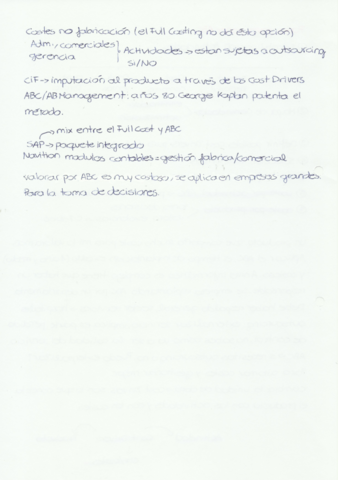 Costes no fabricación (el Full Costing no da esta opción)
Adm., comerciales } Actividades → estan sujetas a outsourcing
gerencia SI/NO
CIF → imputación al producto a través de los Cost Drivers
ABC/ABManagement: años 80 Georges Kaplan patenta el
método.
→ mix entre el Full Cost y ABC
SAP → paquete integrado
Navition modulos contables → gestión fabrica/comercial
valorar por ABC es muy costoso, se aplica en empresas grandes.
Para la toma de decisiones.